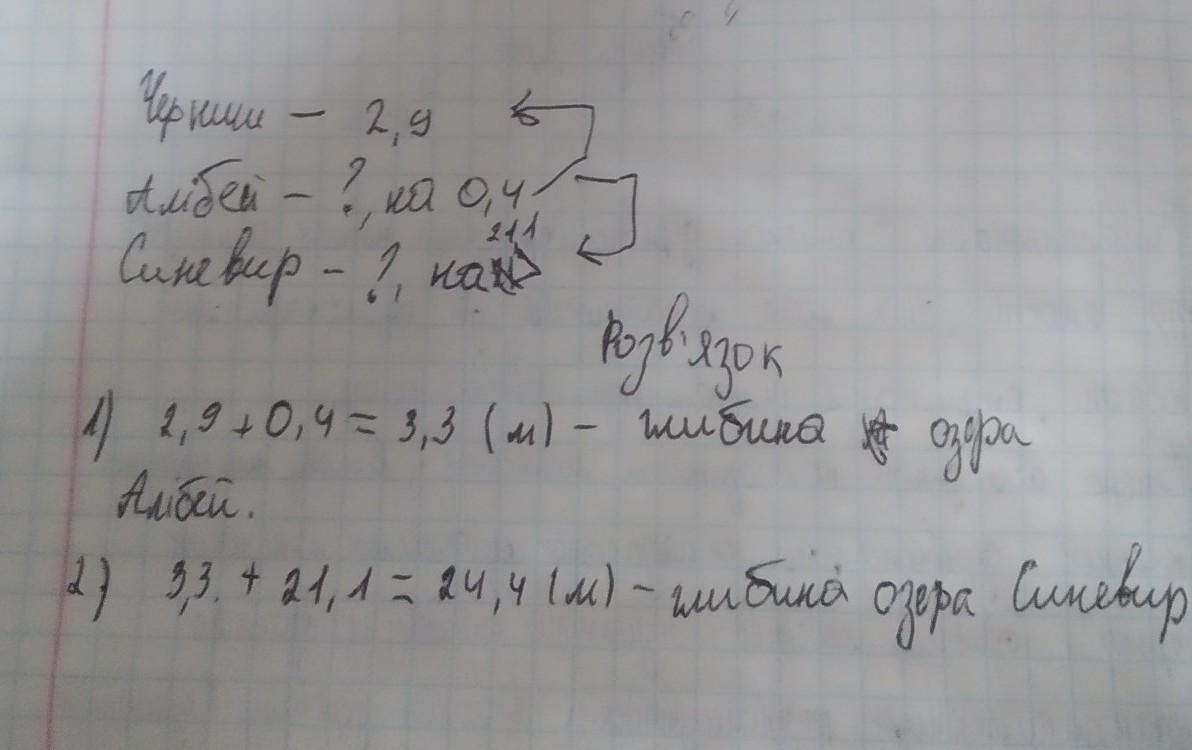 Черниш – 2,9
Алібей – ?, на 0,4
Синевир – ?, на 21,1
Розв'язок
1) 2,9 + 0,4 = 3,3 (м) – глибина озера
Алібей.
2) 3,3 + 21,1 = 24,4 (м) – глибина озера Синевир